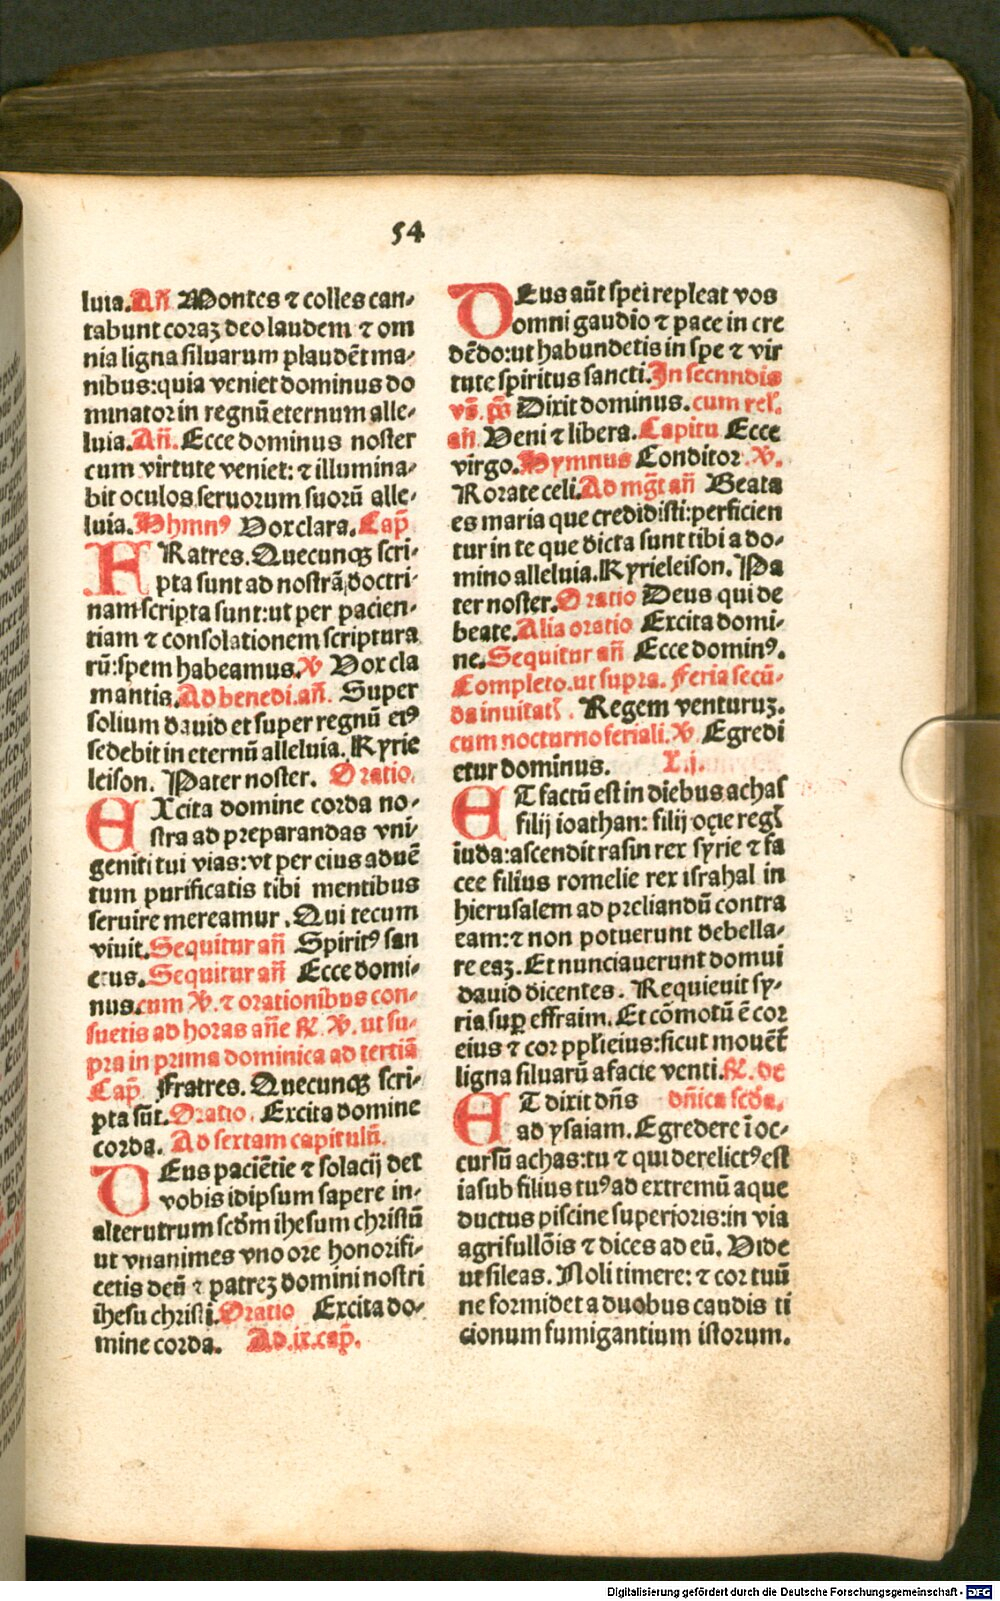 54
luia. Añ Montes ⁊ colles can-
tabunt coraꝫ deo laudem ⁊ om
nia ligna siluarum plaudẽt ma-
nibus: quia veniet dominus do
minator in regnũ eternum alle-
luia. Añ. Ecce dominus noster
cum virtute veniet: ⁊ illumina-
bit oculos seruorum suorũ alle-
luia. Hymnꝰ Vox clara. Cap̃
FRatres. Quecunqꝫ scri-
pta sunt ad nostrã doctri-
nam scripta sunt: ut per pacien-
tiam ⁊ consolationem scriptura
rũ: spem habeamus. ℣ Vox cla
mantis. Ad benedi. añ. Super
solium dauid et super regnũ eiꝰ
sedebit in eternũ alleluia. Kyrie
leison. Pater noster. Oratio.
EXcita domine corda no-
stra ad preparandas vni-
geniti tui vias: vt per eius aduẽ
tum purificatis tibi mentibus
seruire mereamur. Qui tecum
viuit. Sequitur añ Spiritꝰ san
ctus. Sequitur añ Ecce domi-
nus. cum ℣. ⁊ orationibus con-
suetis ad horas añe ℟. ℣. ut su-
pra in prima dominica ad tertiã
Cap̃ Fratres. Quecunqꝫ scri-
pta sũt. Oratio. Excita domine
corda. Ad sextam capitulũ.
DEus paciẽtie ⁊ solacij det
vobis idipsum sapere in-
alterutrum scđm ihesum christũ
ut vnanimes vno ore honorifi-
cetis deũ ⁊ patreꝫ domini nostri
ihesu christi. Oratio Excita do-
mine corda. Ad. ix. cap̃.
DEus aũt spei repleat vos
omni gaudio ⁊ pace in cre
dẽdo: ut habundetis in spe ⁊ vir
tute spiritus sancti. In secundis
vs̃. ps̃ Dixit dominus. cum rel̃.
añ. Veni ⁊ libera. Capitu Ecce
virgo. Hymnus Conditor. ℣.
Rorate celi. Ad mg̃t añ Beata
es maria que credidisti: perficien
tur in te que dicta sunt tibi a do-
mino alleluia. Kyrieleison. Pa
ter noster. Oratio Deus qui de
beate. Alia oratio Excita domi-
ne. Sequitur añ Ecce dominꝰ.
Completo. ut supra. Feria secũ-
da inuitat̃. Regem venturuꝫ.
cum nocturno feriali. ℣. Egredi
etur dominus. L. j.
ET factũ est in diebus achas
filij ioathan: filij oçie reg̃
iuda: ascendit rasin rex syrie ⁊ fa
cee filius romelie rex israhal in
hierusalem ad preliandũ contra
eam: ⁊ non potuerunt debella-
re eaꝫ. Et nunciauerunt domui
dauid dicentes. Requieuit sy-
ria suꝑ effraim. Et cõmotũ ẽ cor
eius ⁊ cor ppl̃i eius: sicut mouẽt̃
ligna siluarũ a facie venti. ℟. de
ET dixit dñs dñica scđa.
ad ysaiam. Egredere ĩ oc-
cursũ achas: tu ⁊ qui derelictꝰ est
iasub filius tuꝰ ad extremũ aque
ductus piscine superioris: in via
agri fullõis ⁊ dices ad eũ. Vide
ut sileas. Noli timere: ⁊ cor tuũ
ne formidet a duobus caudis ti
cionum fumigantium istorum.
Digitalisierung gefördert durch die Deutsche Forschungsgemeinschaft - DFG